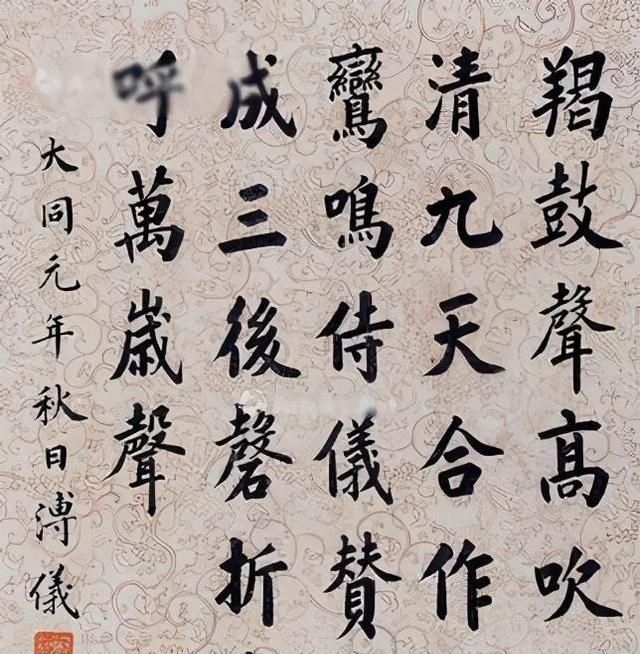 羯鼓聲高吹
清九天合作
鸞鳴侍儀贊
成三後磬折
呼萬歲聲
大同元年秋日溥儀